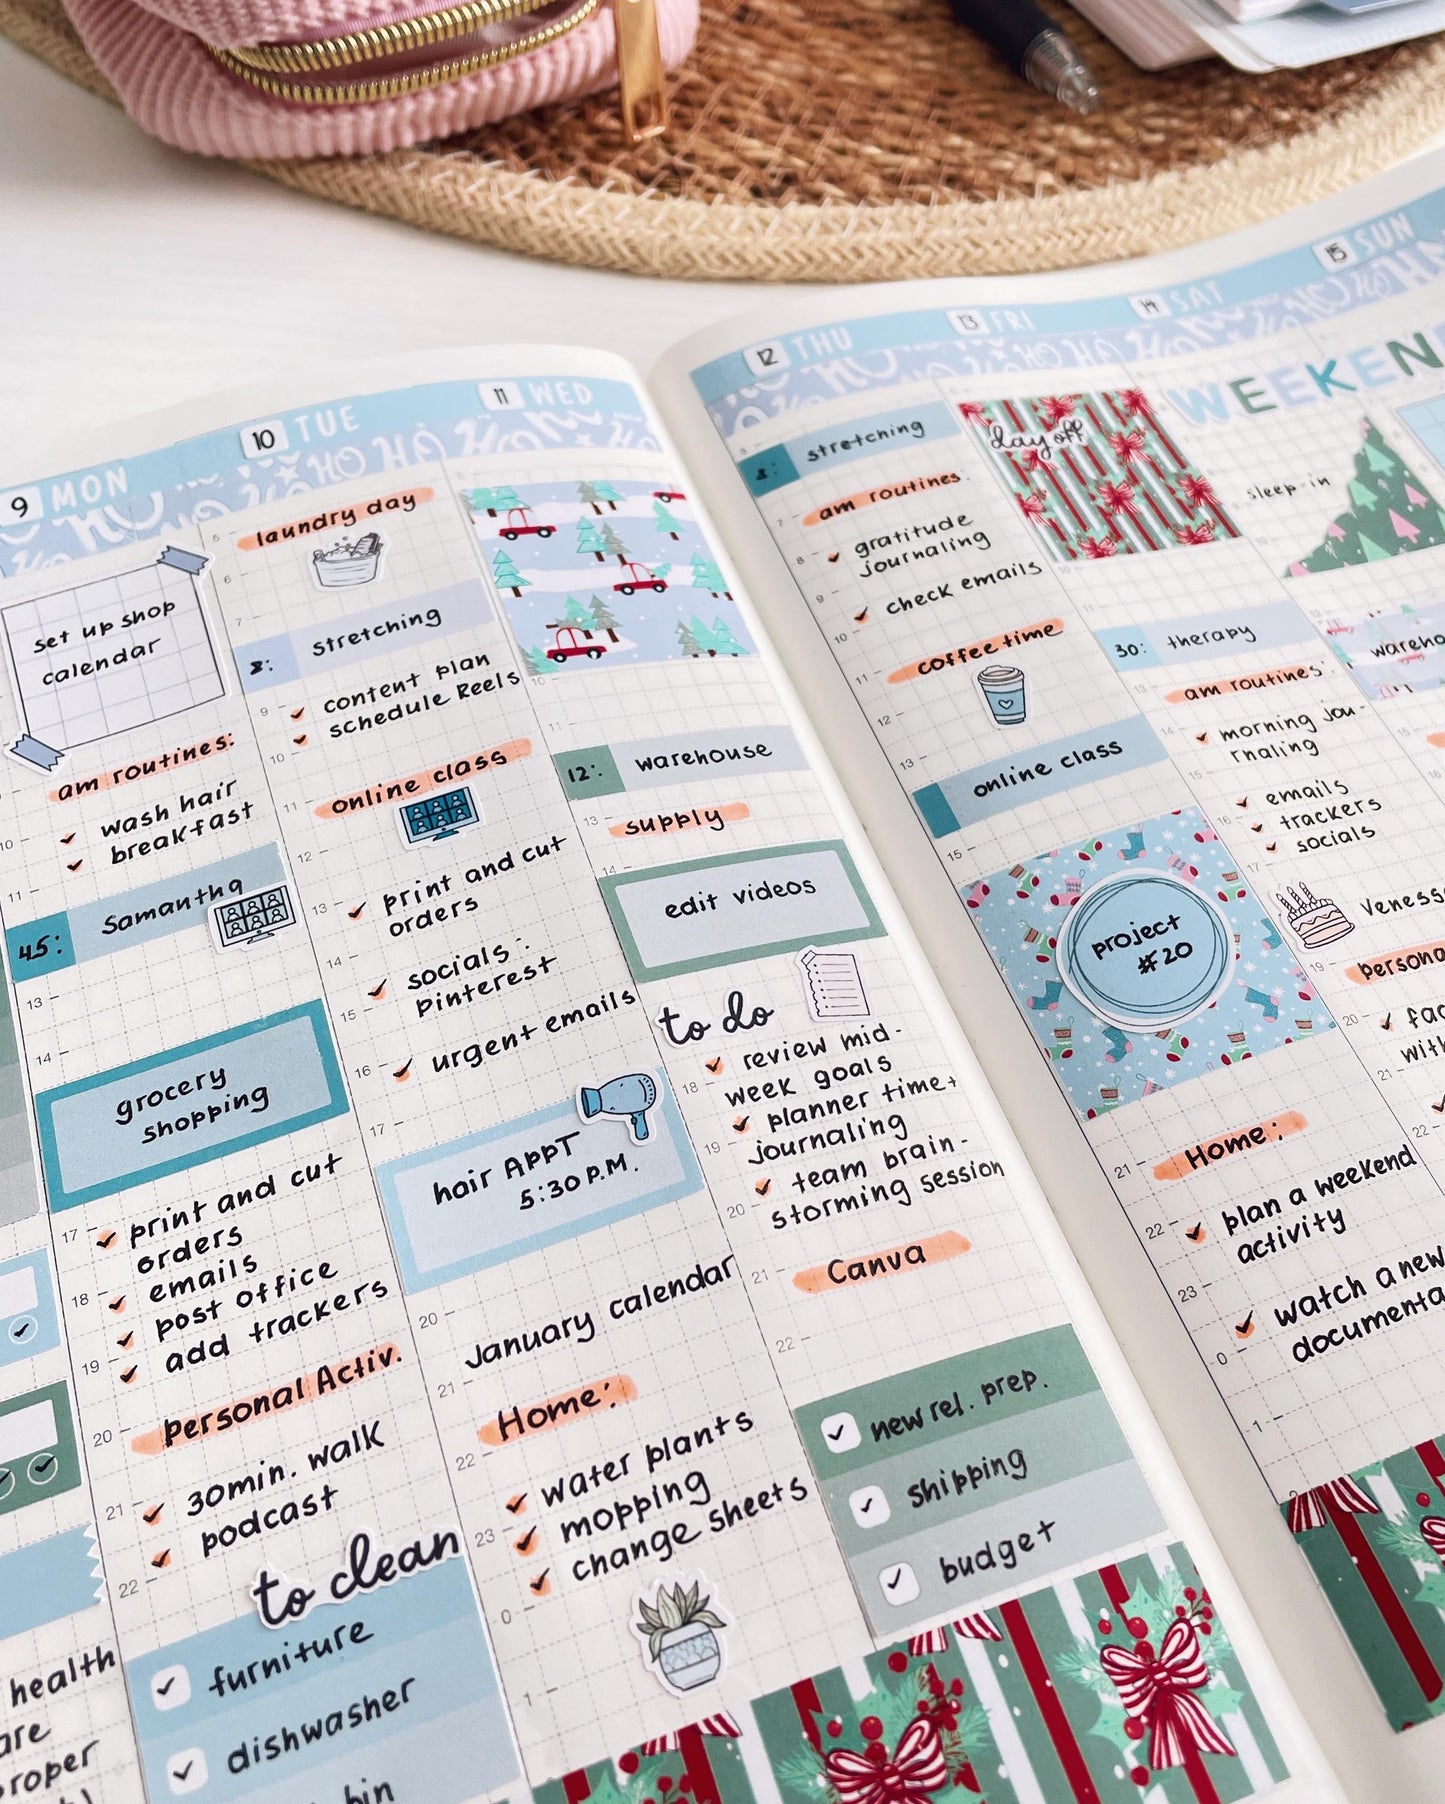 9 MON
set up shop
calendar
am routines:
wash hair
breakfast
45: Samantha
grocery
shopping
print and cut
orders
emails
post office
add trackers
personal Activ.
30min. walk
podcast
to clean
furniture
dishwasher
bin
health
10 TUE
HO HO HO
laundry day
8: stretching
content plan
schedule Reels
online class
print and cut
orders
socials:
pinterest
urgent emails
hair APPT
5:30 P.M.
January calendar
Home:
water plants
mopping
change sheets
11 WED
12: warehouse
supply
edit videos
to do
review mid-
week goals
planner time+
journaling
team brain-
storming session
Canva
new rel. prep.
shipping
budget
12 THU
8: stretching
am routines:
gratitude
journaling
check emails
coffee time
online class
project
#20
Home:
plan a weekend
activity
watch a new
13 FRI
day off
30: therapy
am routines:
morning jou-
rnaling
emails
trackers
socials
14 SAT
WEEKEN
sleep-in
15 SUN